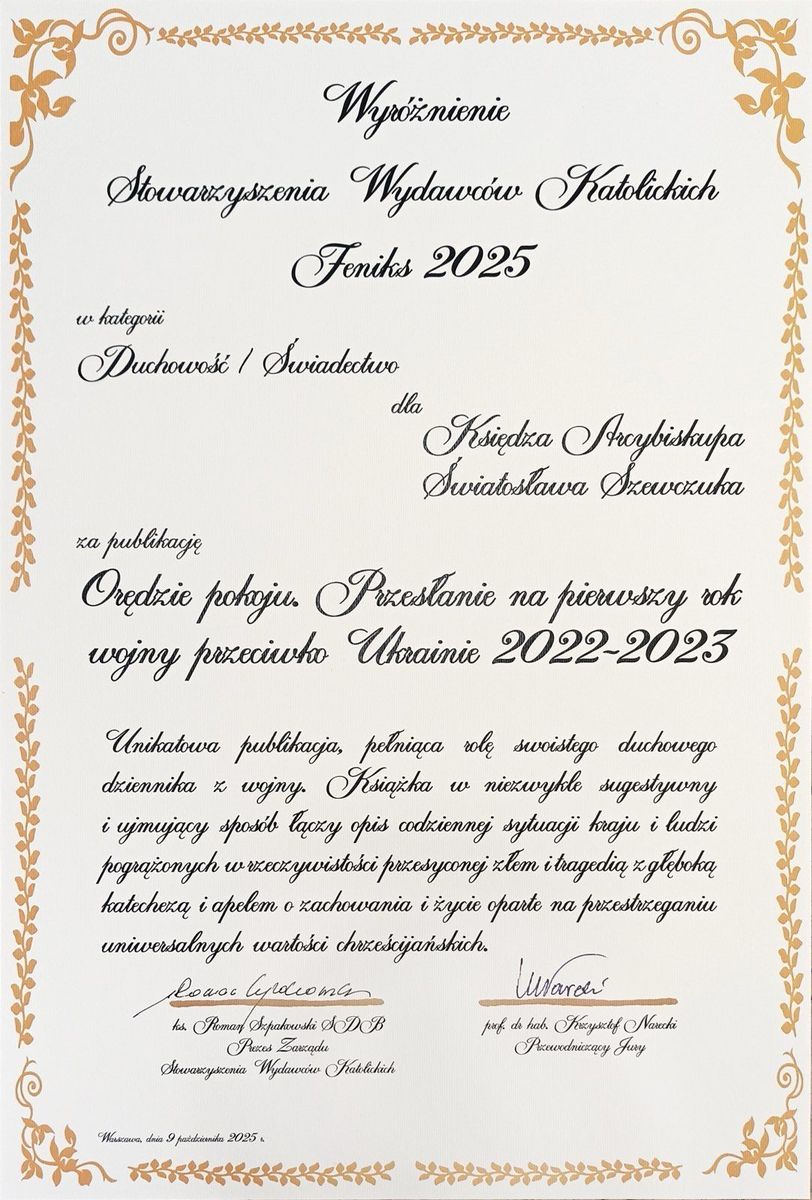 Wyróżnienie
Stowarzyszenia Wydawców Katolickich
Feniks 2025
w kategorii
Duchowość / Świadectwo
dla
Księdza Arcybiskupa
Światosława Szewczuka
za publikację
Orędzie pokoju. Przesłanie na pierwszy rok
wojny przeciwko Ukrainie 2022-2023
Unikatowa publikacja, pełniąca rolę swoistego duchowego
dziennika z wojny. Książka w niezwykle sugestywny
i ujmujący sposób łączy opis codziennej sytuacji kraju i ludzi
pogrążonych w rzeczywistości przesyconej złem i tragedią z głęboką
katechezą i apelem o zachowania i życie oparte na przestrzeganiu
uniwersalnych wartości chrześcijańskich.
ks. Roman Szpakowski SDB
Prezes Zarządu
Stowarzyszenia Wydawców Katolickich
prof. dr hab. Krzysztof Narecki
Przewodniczący Jury
Warszawa, dnia 9 października 2025 r.